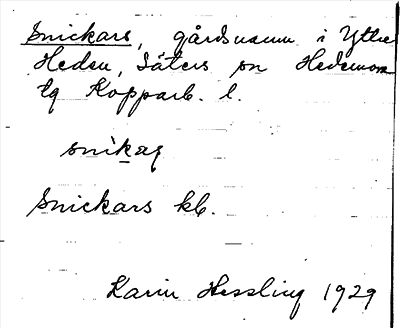 Snickars, gårdsnamn i Yttre
Heden, Säters sn Hedemora
tg Kopparb. l.
snikas
Snickars kb.
Karin Hessling 1929